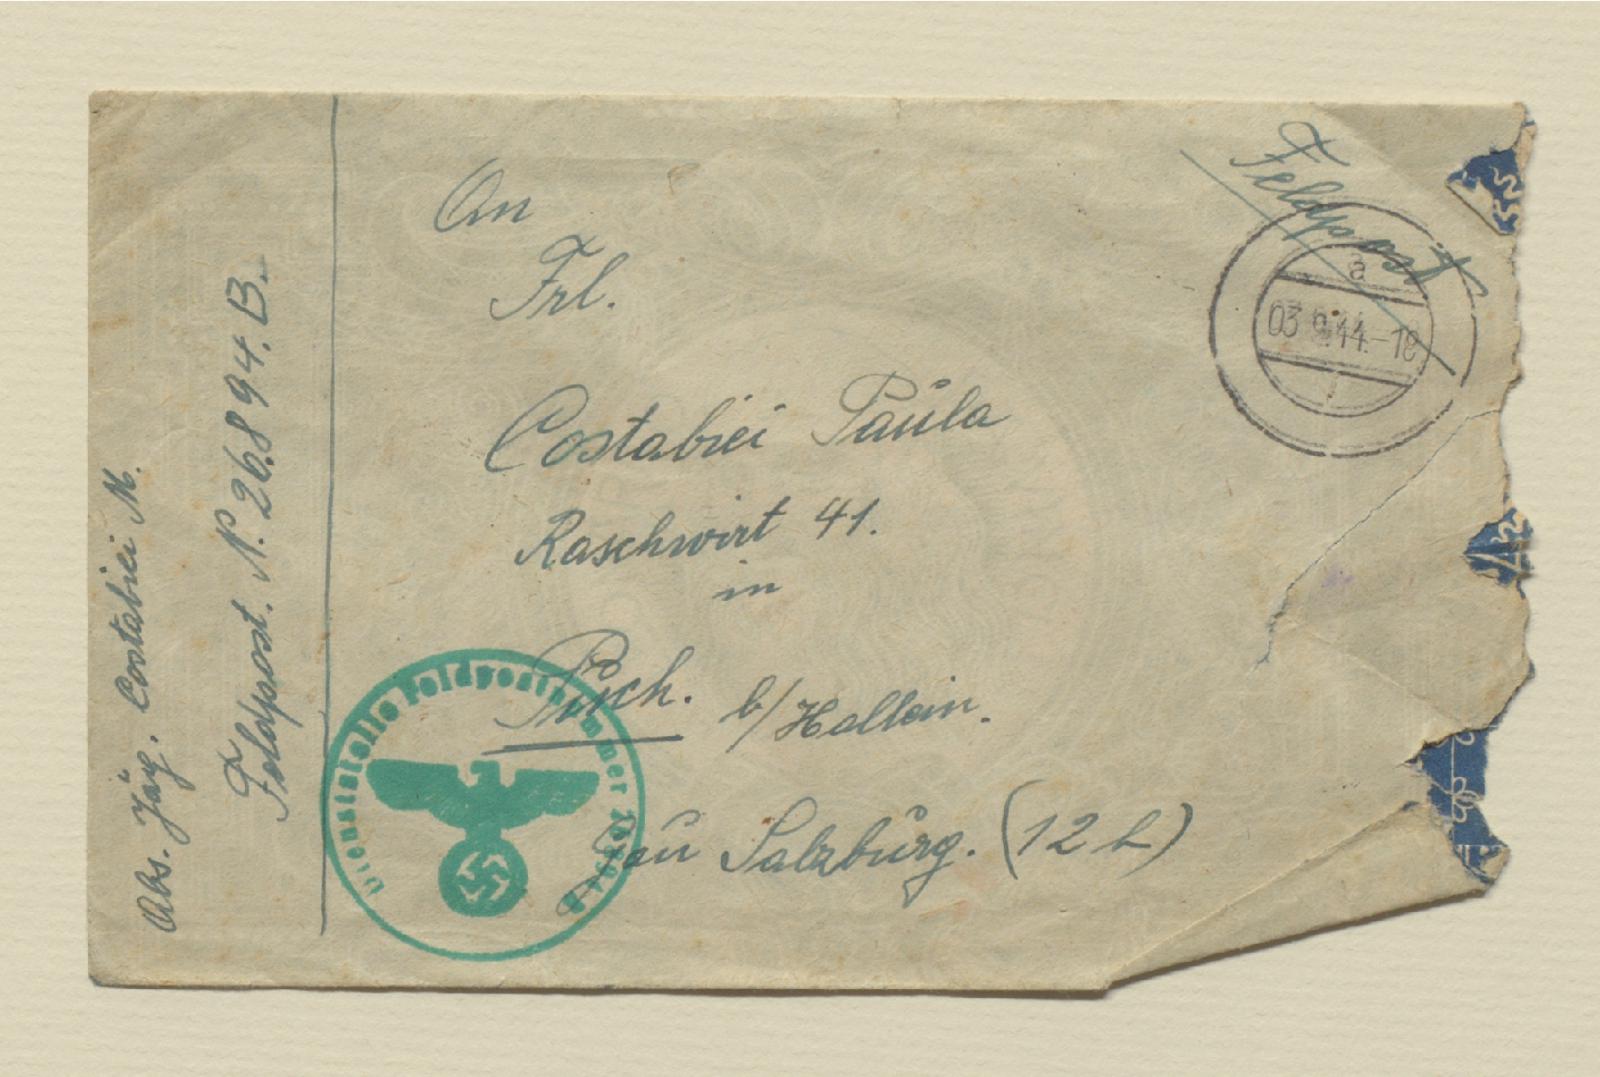 Abs. Jäg. Costabiei M.
Feldpost. N. 26.894. B.
Feldpost
a
03.9.44.-18
An
Frl.
Costabiei Paŭla
Raschwirt 41.
in
Puch. b/Hallein.
Gaŭ Salzbŭrg. (12 b)
Dienststelle Feldpostnummer